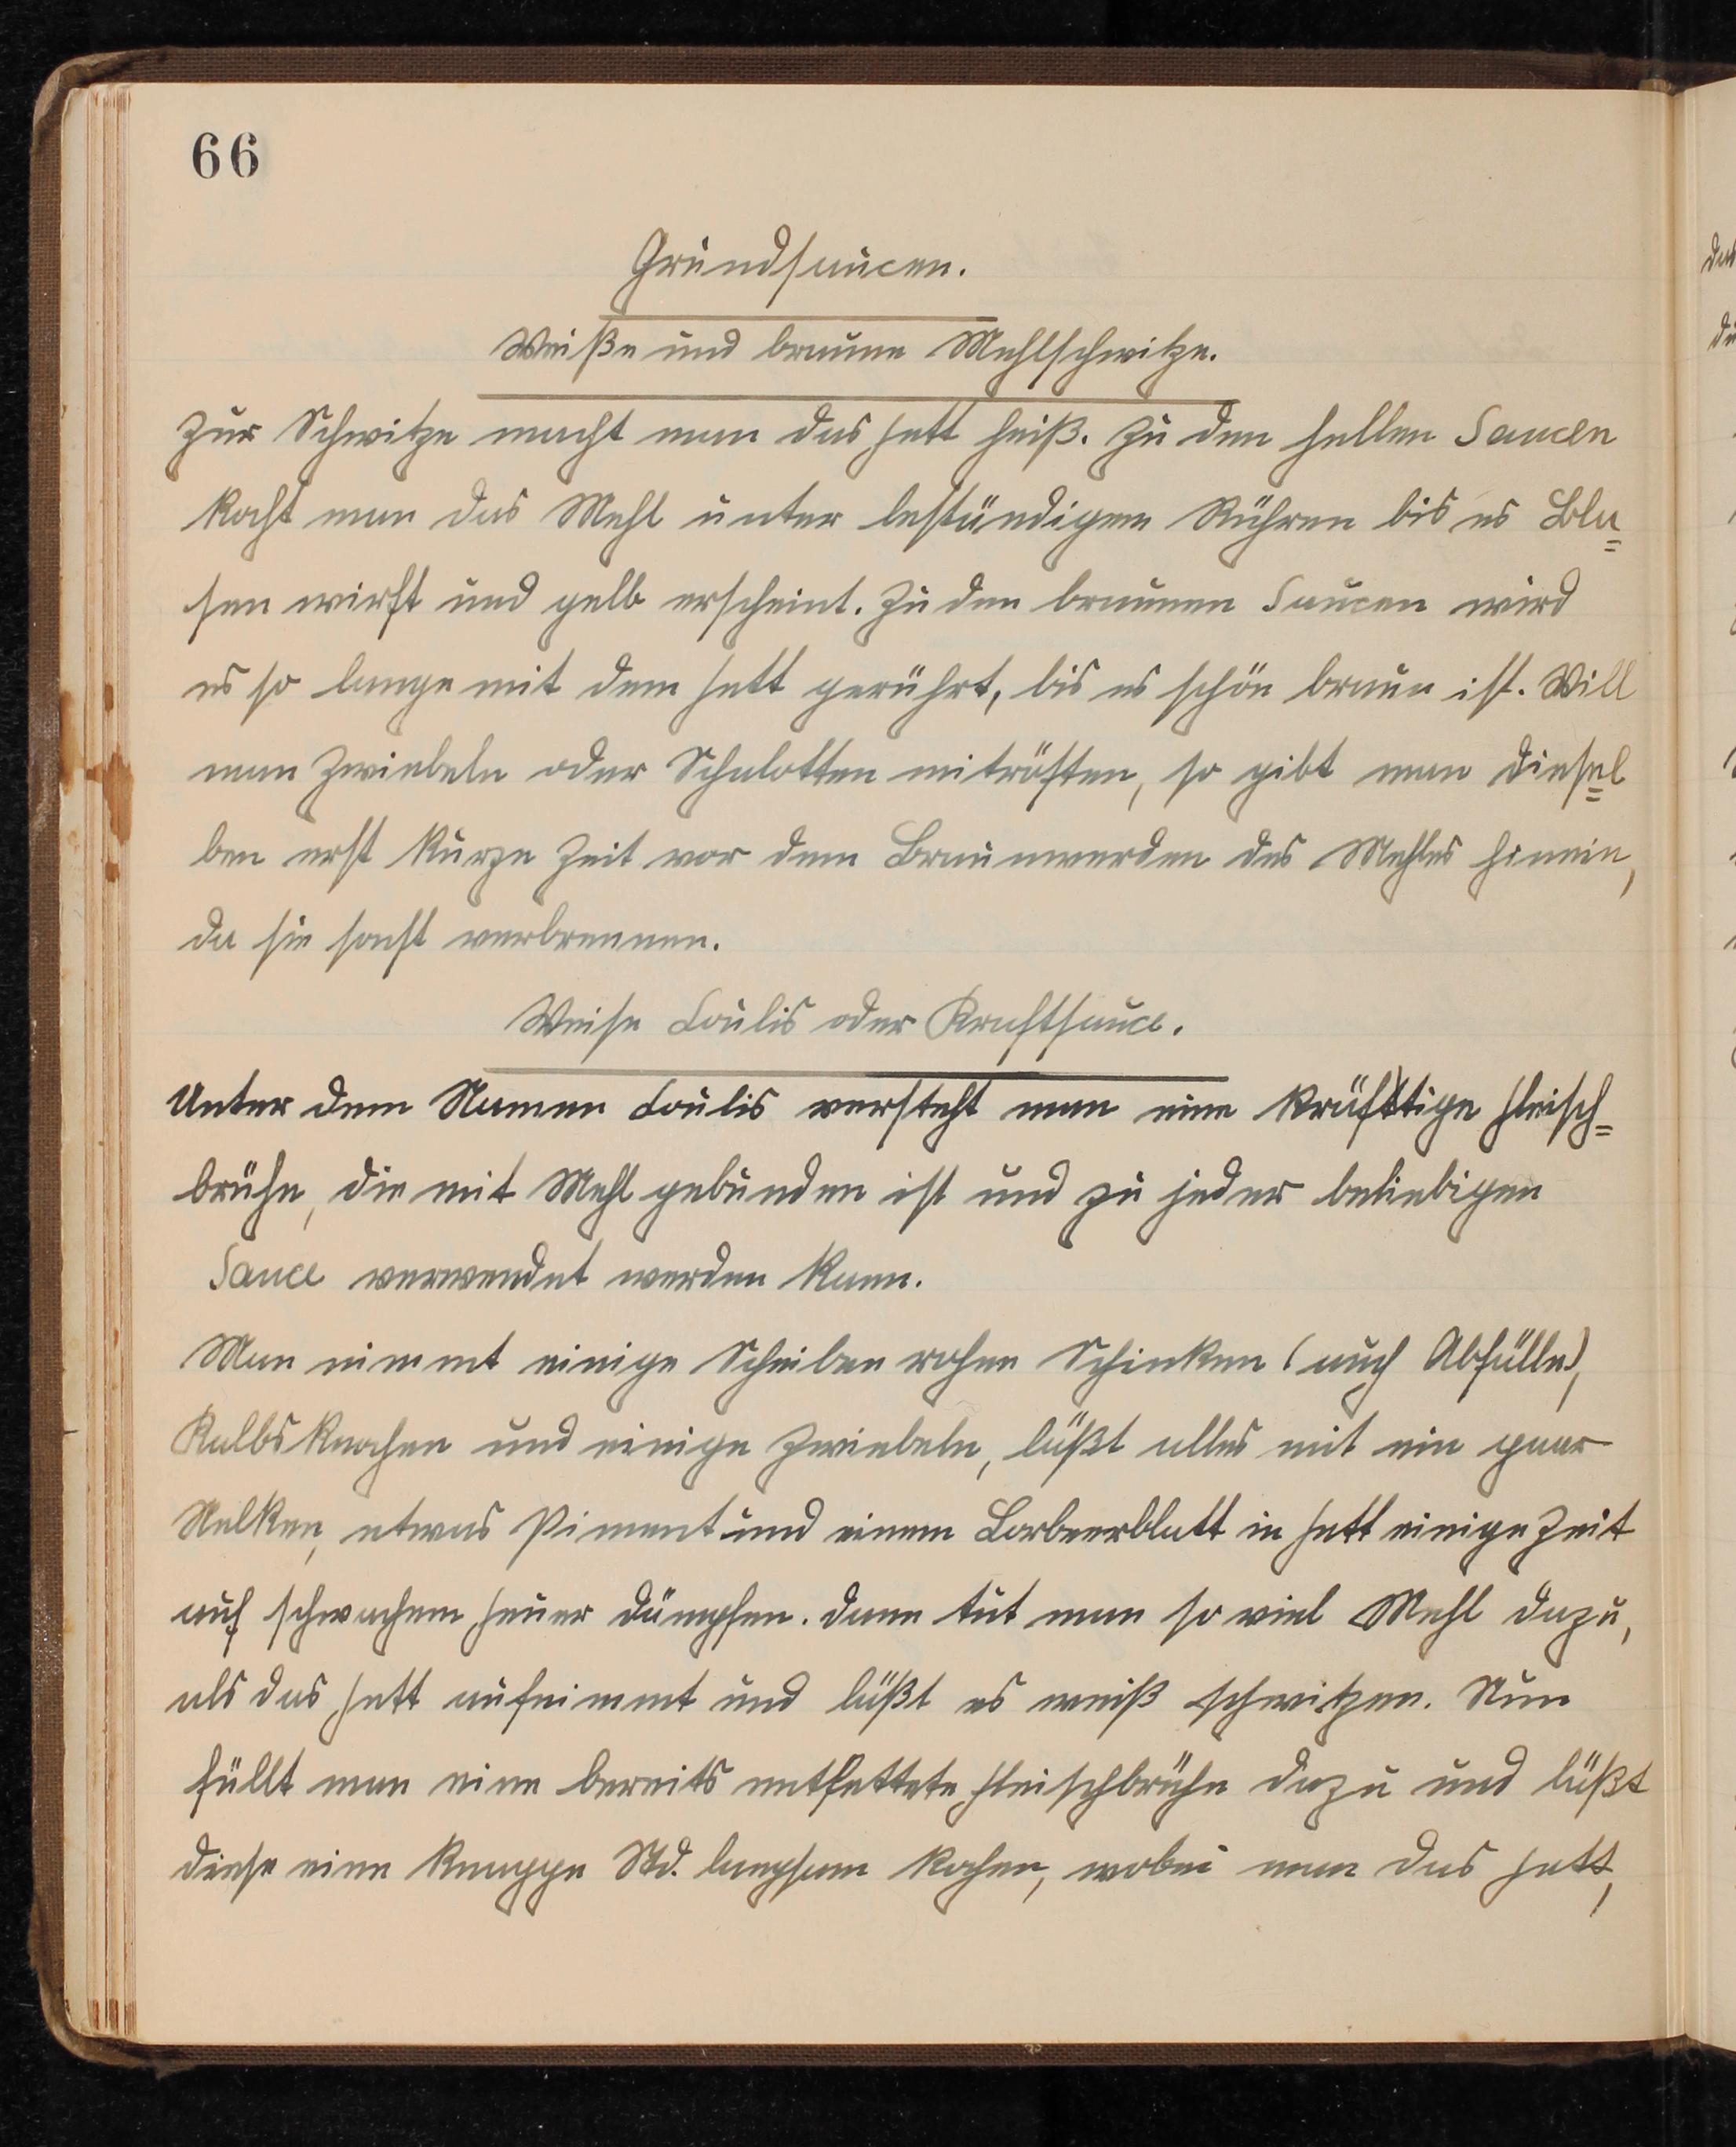 66
Grundsaucen.
Weiße und braune Mehlschwitze.
Zur Schwitze macht man das Fett heiß. Zu den hellen Saucen
kocht man das Mehl unter beständigem Rühren bis es Bla=
sen wirft und gelb erscheint. Zu den braunen Saucen wird
es so lange mit dem Fett gerührt, bis es schön braun ist. Will
man Zwiebeln oder Schalotten mitrösten, so gibt man diesel=
ben erst kurze Zeit vor dem Braunwerden des Mehles hinein,
da sie sonst verbrennen.
Weise Coulis oder Kraftsauce.
Unter dem Namen Coulis versteht man eine kräftige Fleisch=
brühe, die mit Mehl gebunden ist und zu jeder beliebigen
Sauce verwendet werden kann.
Man nimmt einige Scheiben rohen Schinken (auch Abfälle),
Kalbsknochen und einige Zwiebeln, läßt alles mit ein paar
Nelken, etwas Piment und einem Lorbeerblatt in Fett einige Zeit
auf schwachem Feuer dämpfen. Dann tut man so viel Mehl dazu,
als das Fett aufnimmt und läßt es weiß schwitzen. Nun
füllt man eine bereits entfettete Fleischbrühe dazu und läßt
diese eine knappe Std. langsam kochen, wobei man das Fett,